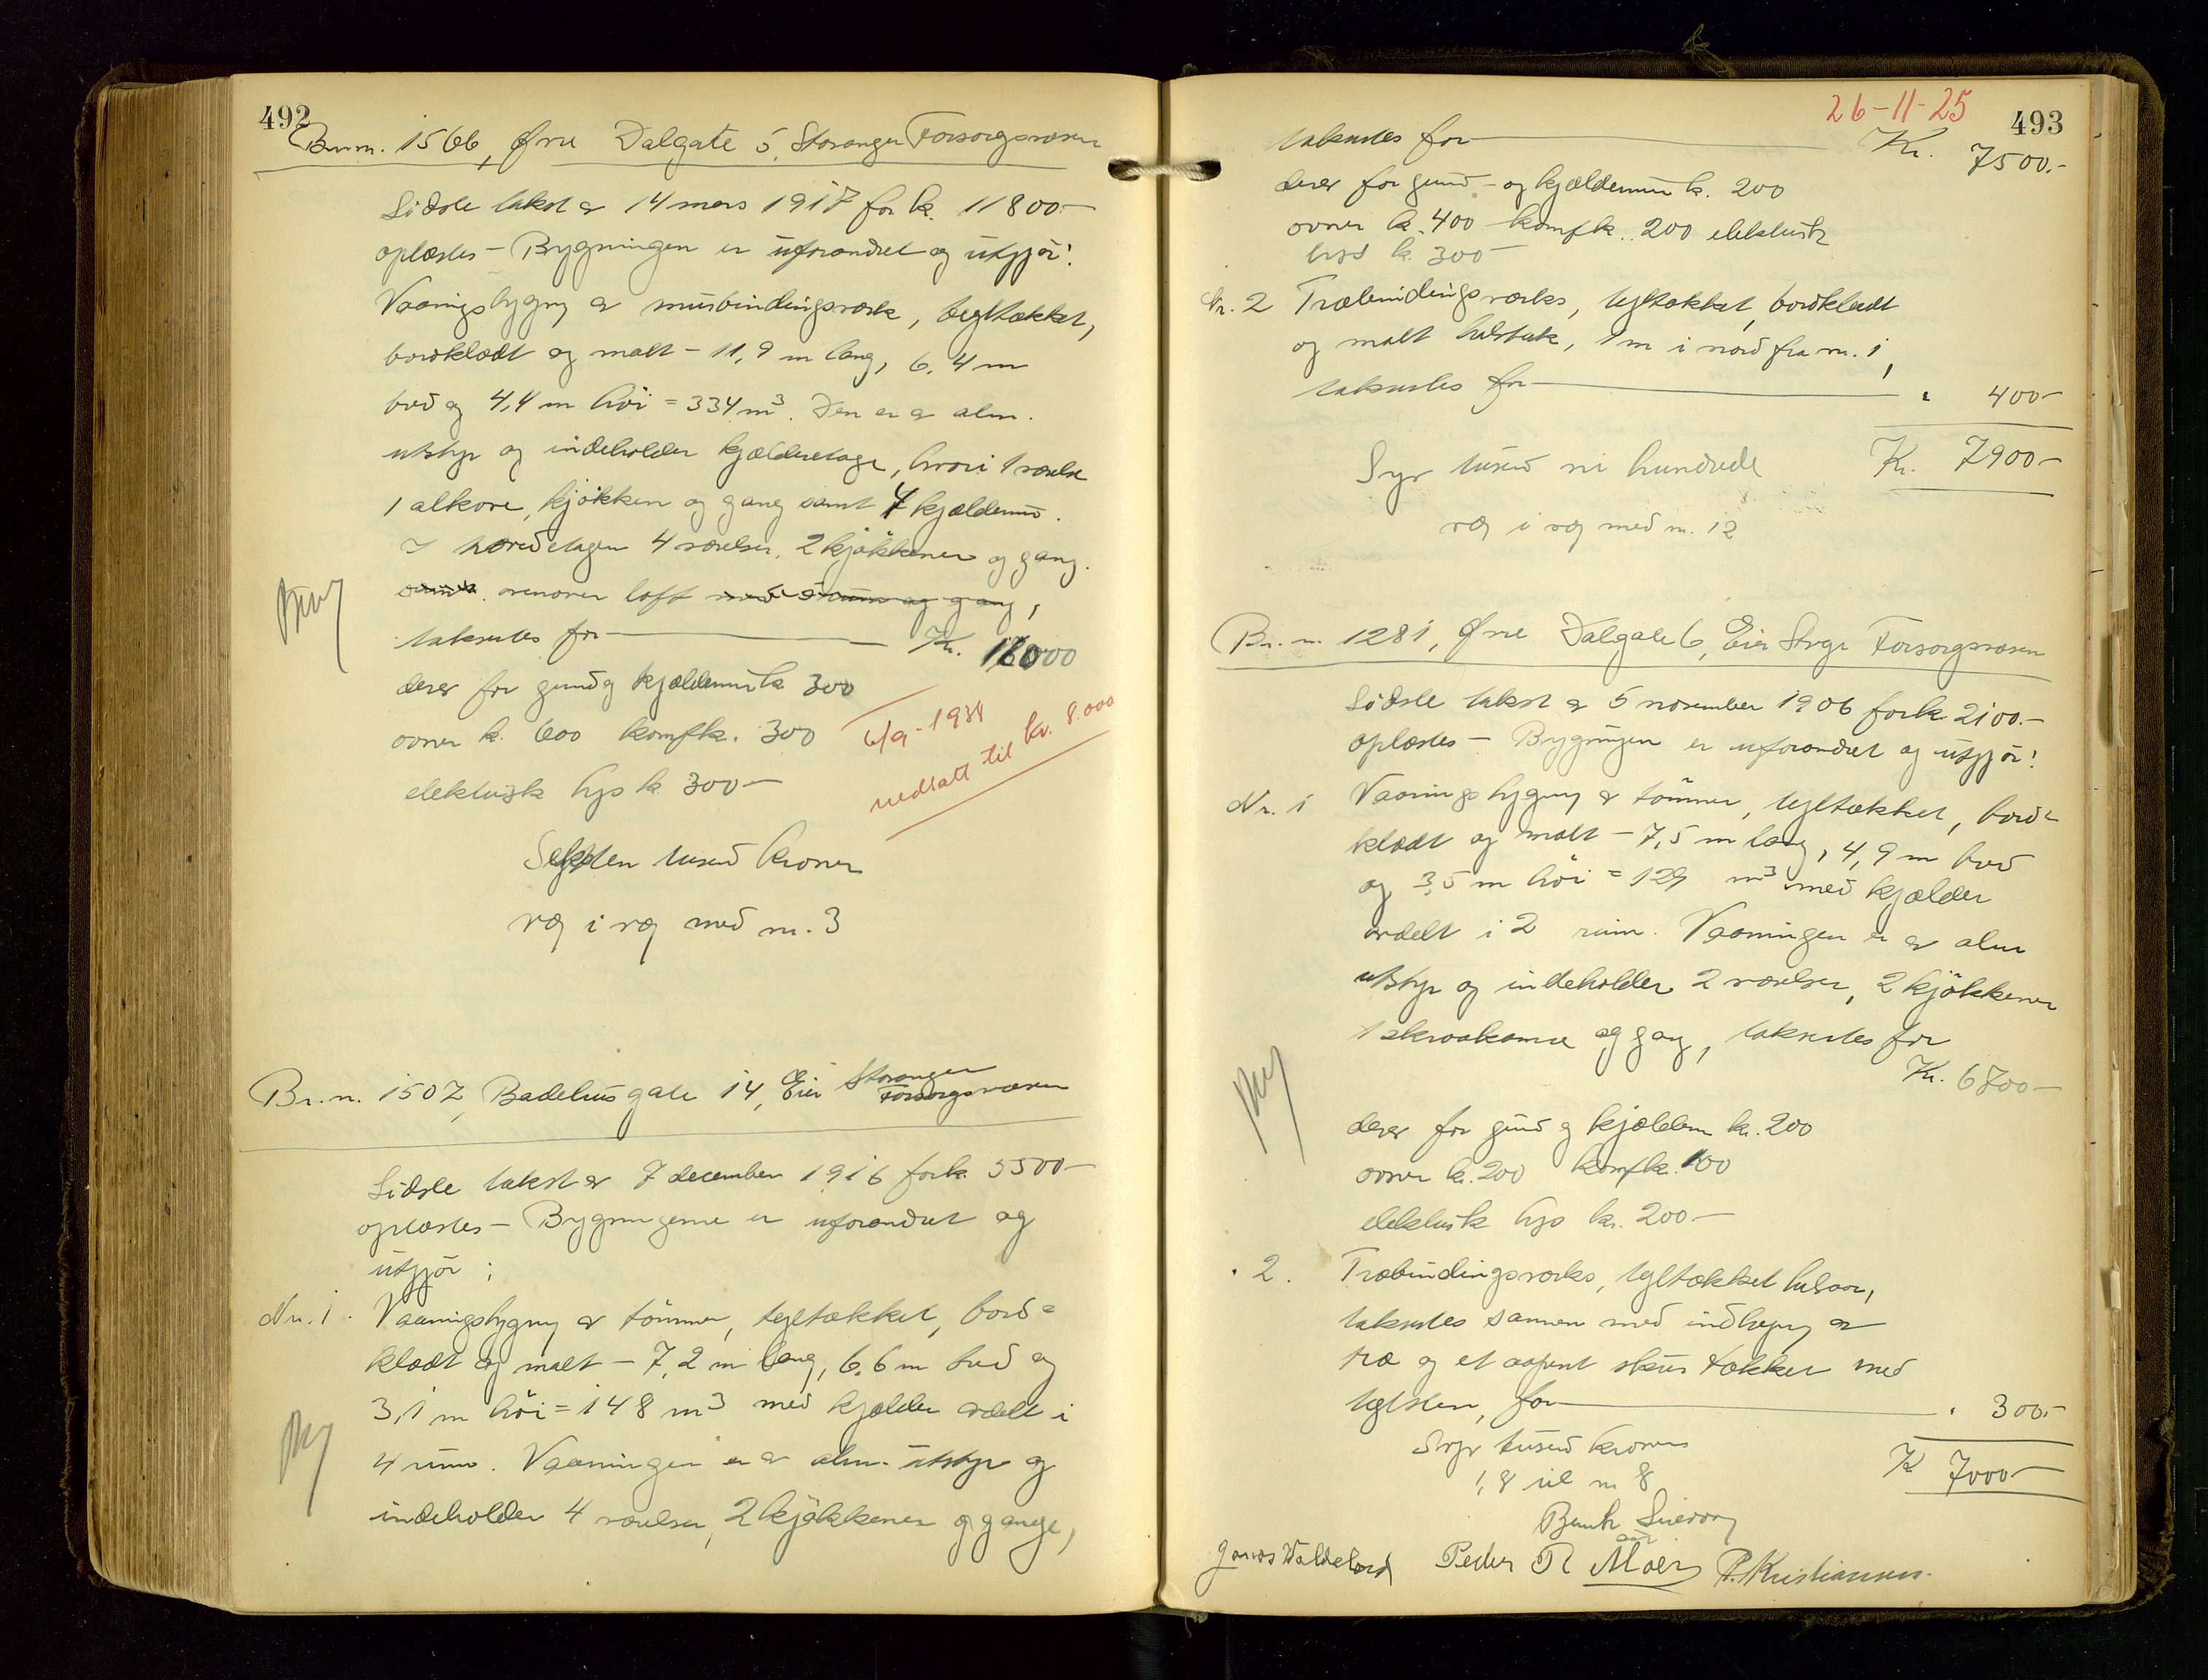 492
Br.nr. 1566, Øvre Dalgate 5, Stavanger Forsorgsvæsen
Sidste takst av 14 mars 1917 for kr. 11800.-
oplæstes - Bygningen er uforandret og utgjør:
Vaaningsbygning av murbindingsverk, tegltækket,
bordklædt og malt - 11,9 m lang, 6,4 m
bred og 4,4 m høi = 334 m³. Den er av alm.
utstyr og indeholder kjælderetage, hvori 1 værelse
1 alkove, kjøkken og gang samt 4 kjælderrum.
I hovedetagen 4 værelser, 2 kjøkkener og gang.
samt ovenover loft med 3 rum og gang,
takseres for Kr. 16000
derav for grund og kjældermur kr 300
ovner kr. 600 komf kr. 300
elektrisk lys kr 300-
6/9-1938
nedsatt til kr. 8.000
Seksten tusend kroner
væg i væg med nr. 3
Br.nr. 1507, Badehusgate 14, Eier Stavanger
Forsorgsvæsen
Sidste takst av 7 december 1916 for kr. 5500-
oplæstes - Bygningerne er uforandret og
utgjør;
Nr. 1. Vaaningsbygning av tømmer, tegltækket, bord=
klædt og malt - 7,2 m lang, 6,6 m bred og
3,1 m høi = 148 m³ med kjælder avdelt i
4 rum. Vaaningen er av alm. utstyr og
indeholder 4 værelser, 2 kjøkkener og gange,
26-11-25
493
takseres for Kr. 7500.-
derav for grund- og kjældermur kr. 200
ovner kr. 400 komf kr. 200 elektrisk
lys kr. 300-
Nr. 2 Træbindingsverks, tegltækket, bordklædt
og malt 1 m i nord fra nr. 1,
takseres for " 400-
Kr. 7900-
Syv tusend ni hundrede
væg i væg med nr. 12
Br.nr. 1281, Øvre Dalgate 6, Eier Stvgr Forsorgsvæsen
Sidste takst av 5 november 1906 for kr. 2100.-
oplæstes - Bygningen er uforandret og utgjør:
Nr. 1 Vaaningsbygning av tømmer, tegltækket, bord=
klædt og malt - 7,5 m lang, 4,9 m bred
og 3,5 m høi = 129 m³ med kjælder
avdelt i 2 rum. Vaaningen er av alm
utstyr og indeholder 2 værelser, 2 kjøkkener
1 skraakamer og gang, takseres for
Kr. 6700-
derav for grund og kjælderm kr. 200
ovner kr. 200 komf kr. 100
elektrisk lys kr. 200-
" 2. Træbindingsverks, tegltækket
takseres sammen med indhegning av
træ og et aapent skur tækket med
teglsten, for " 300.-
Kr 7000-
Syv tusend kroner
1,8 til nr 8
Peder R Moen P. Kristiansen.